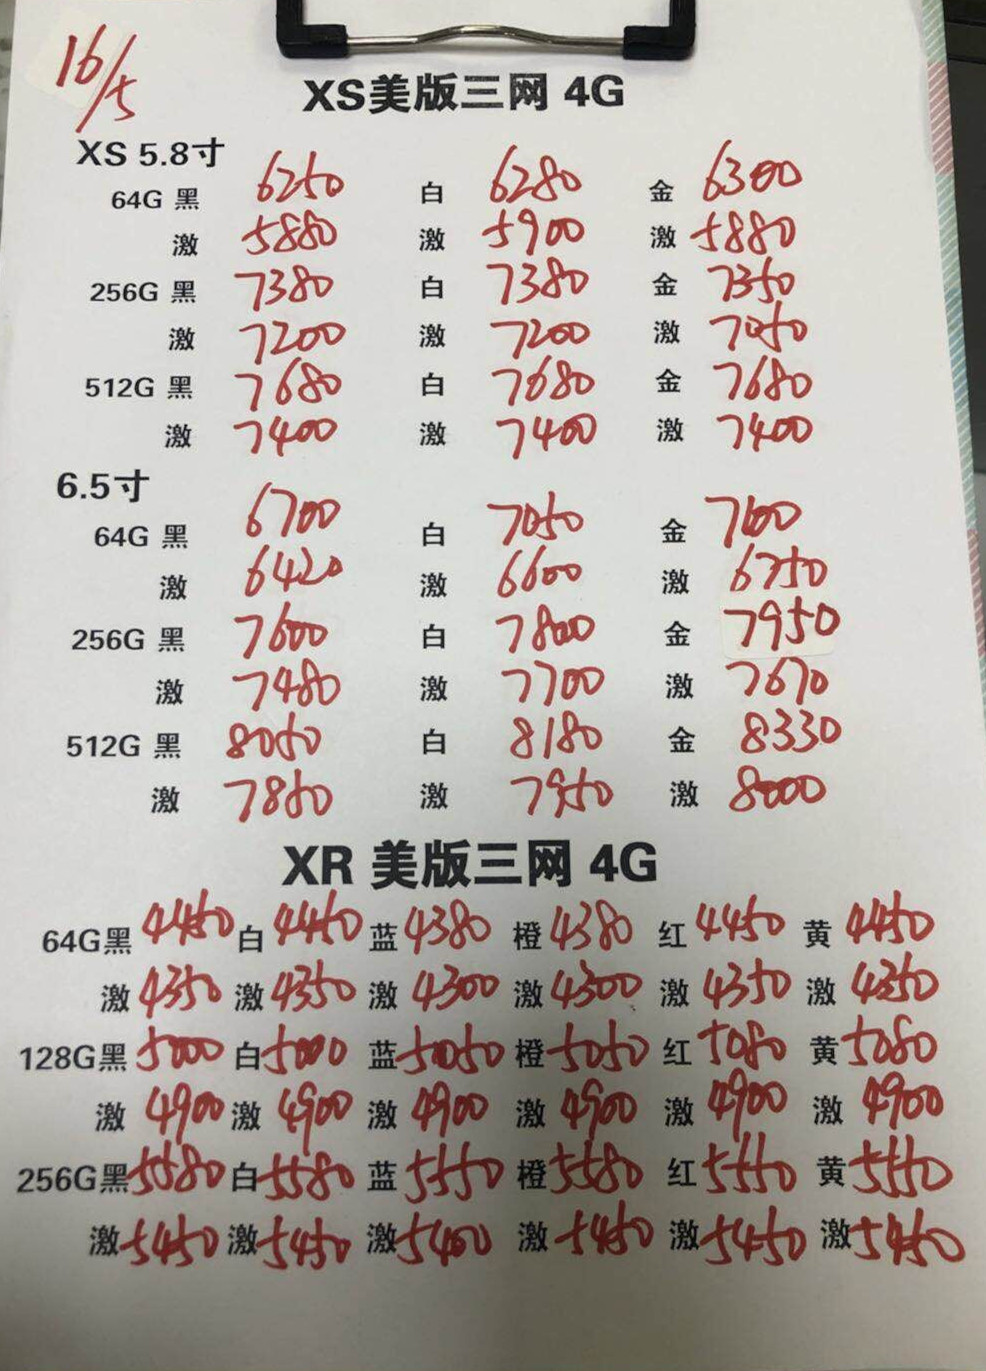 16/5
XS美版三网 4G
XS 5.8寸
64G 黑 6250 白 6280 金 6300
激 5880 激 5900 激 5880
256G 黑 7380 白 7380 金 7350
激 7200 激 7200 激 7050
512G 黑 7680 白 7680 金 7680
激 7400 激 7400 激 7400
6.5寸
64G 黑 6700 白 7050 金 7100
激 6420 激 6600 激 6750
256G 黑 7600 白 7800 金 7950
激 7480 激 7700 激 7670
512G 黑 8050 白 8180 金 8330
激 7850 激 7950 激 8000
XR 美版三网 4G
64G黑 4450 白 4450 蓝 4380 橙 4380 红 4450 黄 4450
激 4350 激 4350 激 4300 激 4300 激 4350 激 4350
128G黑 5000 白 5000 蓝 5050 橙 5050 红 5080 黄 5080
激 4900 激 4900 激 4900 激 4900 激 4900 激 4900
256G黑 5580 白 5580 蓝 5550 橙 5580 红 5550 黄 5550
激 5450 激 5450 激 5400 激 5450 激 5450 激 5450